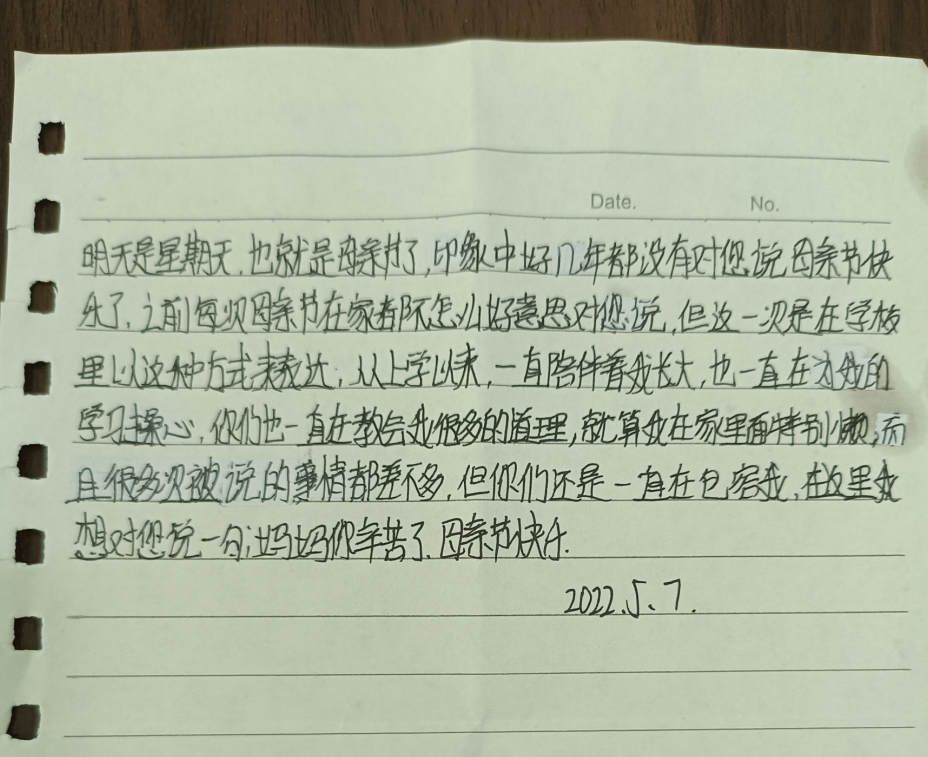 Date. No.
明天是星期天,也就是母亲节了,印象中好几年都没有对您说母亲节快
乐了,之前每次母亲节在家都不怎么好意思对您说,但这一次是在学校
里以这种方式来表达,从上学以来,一直陪伴着我长大,也一直在为我的
学习操心,你们也一直在教会我很多的道理,就算我在家里面特别懒,而
且很多次被说的事情都差不多,但你们还是一直在包容我,在这里我
想对您说一句:妈妈你辛苦了.母亲节快乐.
2022.5.7.